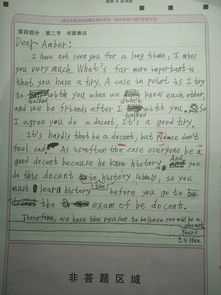 第四部分 第二节 书面表达
Dear Amber:
I have not seen you for a long time, I miss
you very much. What's far more important is
that you have a try. A case in point is I try
to talked with you when we knew each other,
and we be friends after I talked with you, So
I agree you do a docent. It's a good try.
It's hardly that be a docent, but Please don't
feel sad. As is often the case everyone be a
good docent because he knew history. And
do this docent in history, so you
must learn history before you go to
the exam of be docent.
Therefore, we have the reason to believe you will be a
docent.
Yours
Li Hua
非答题区域